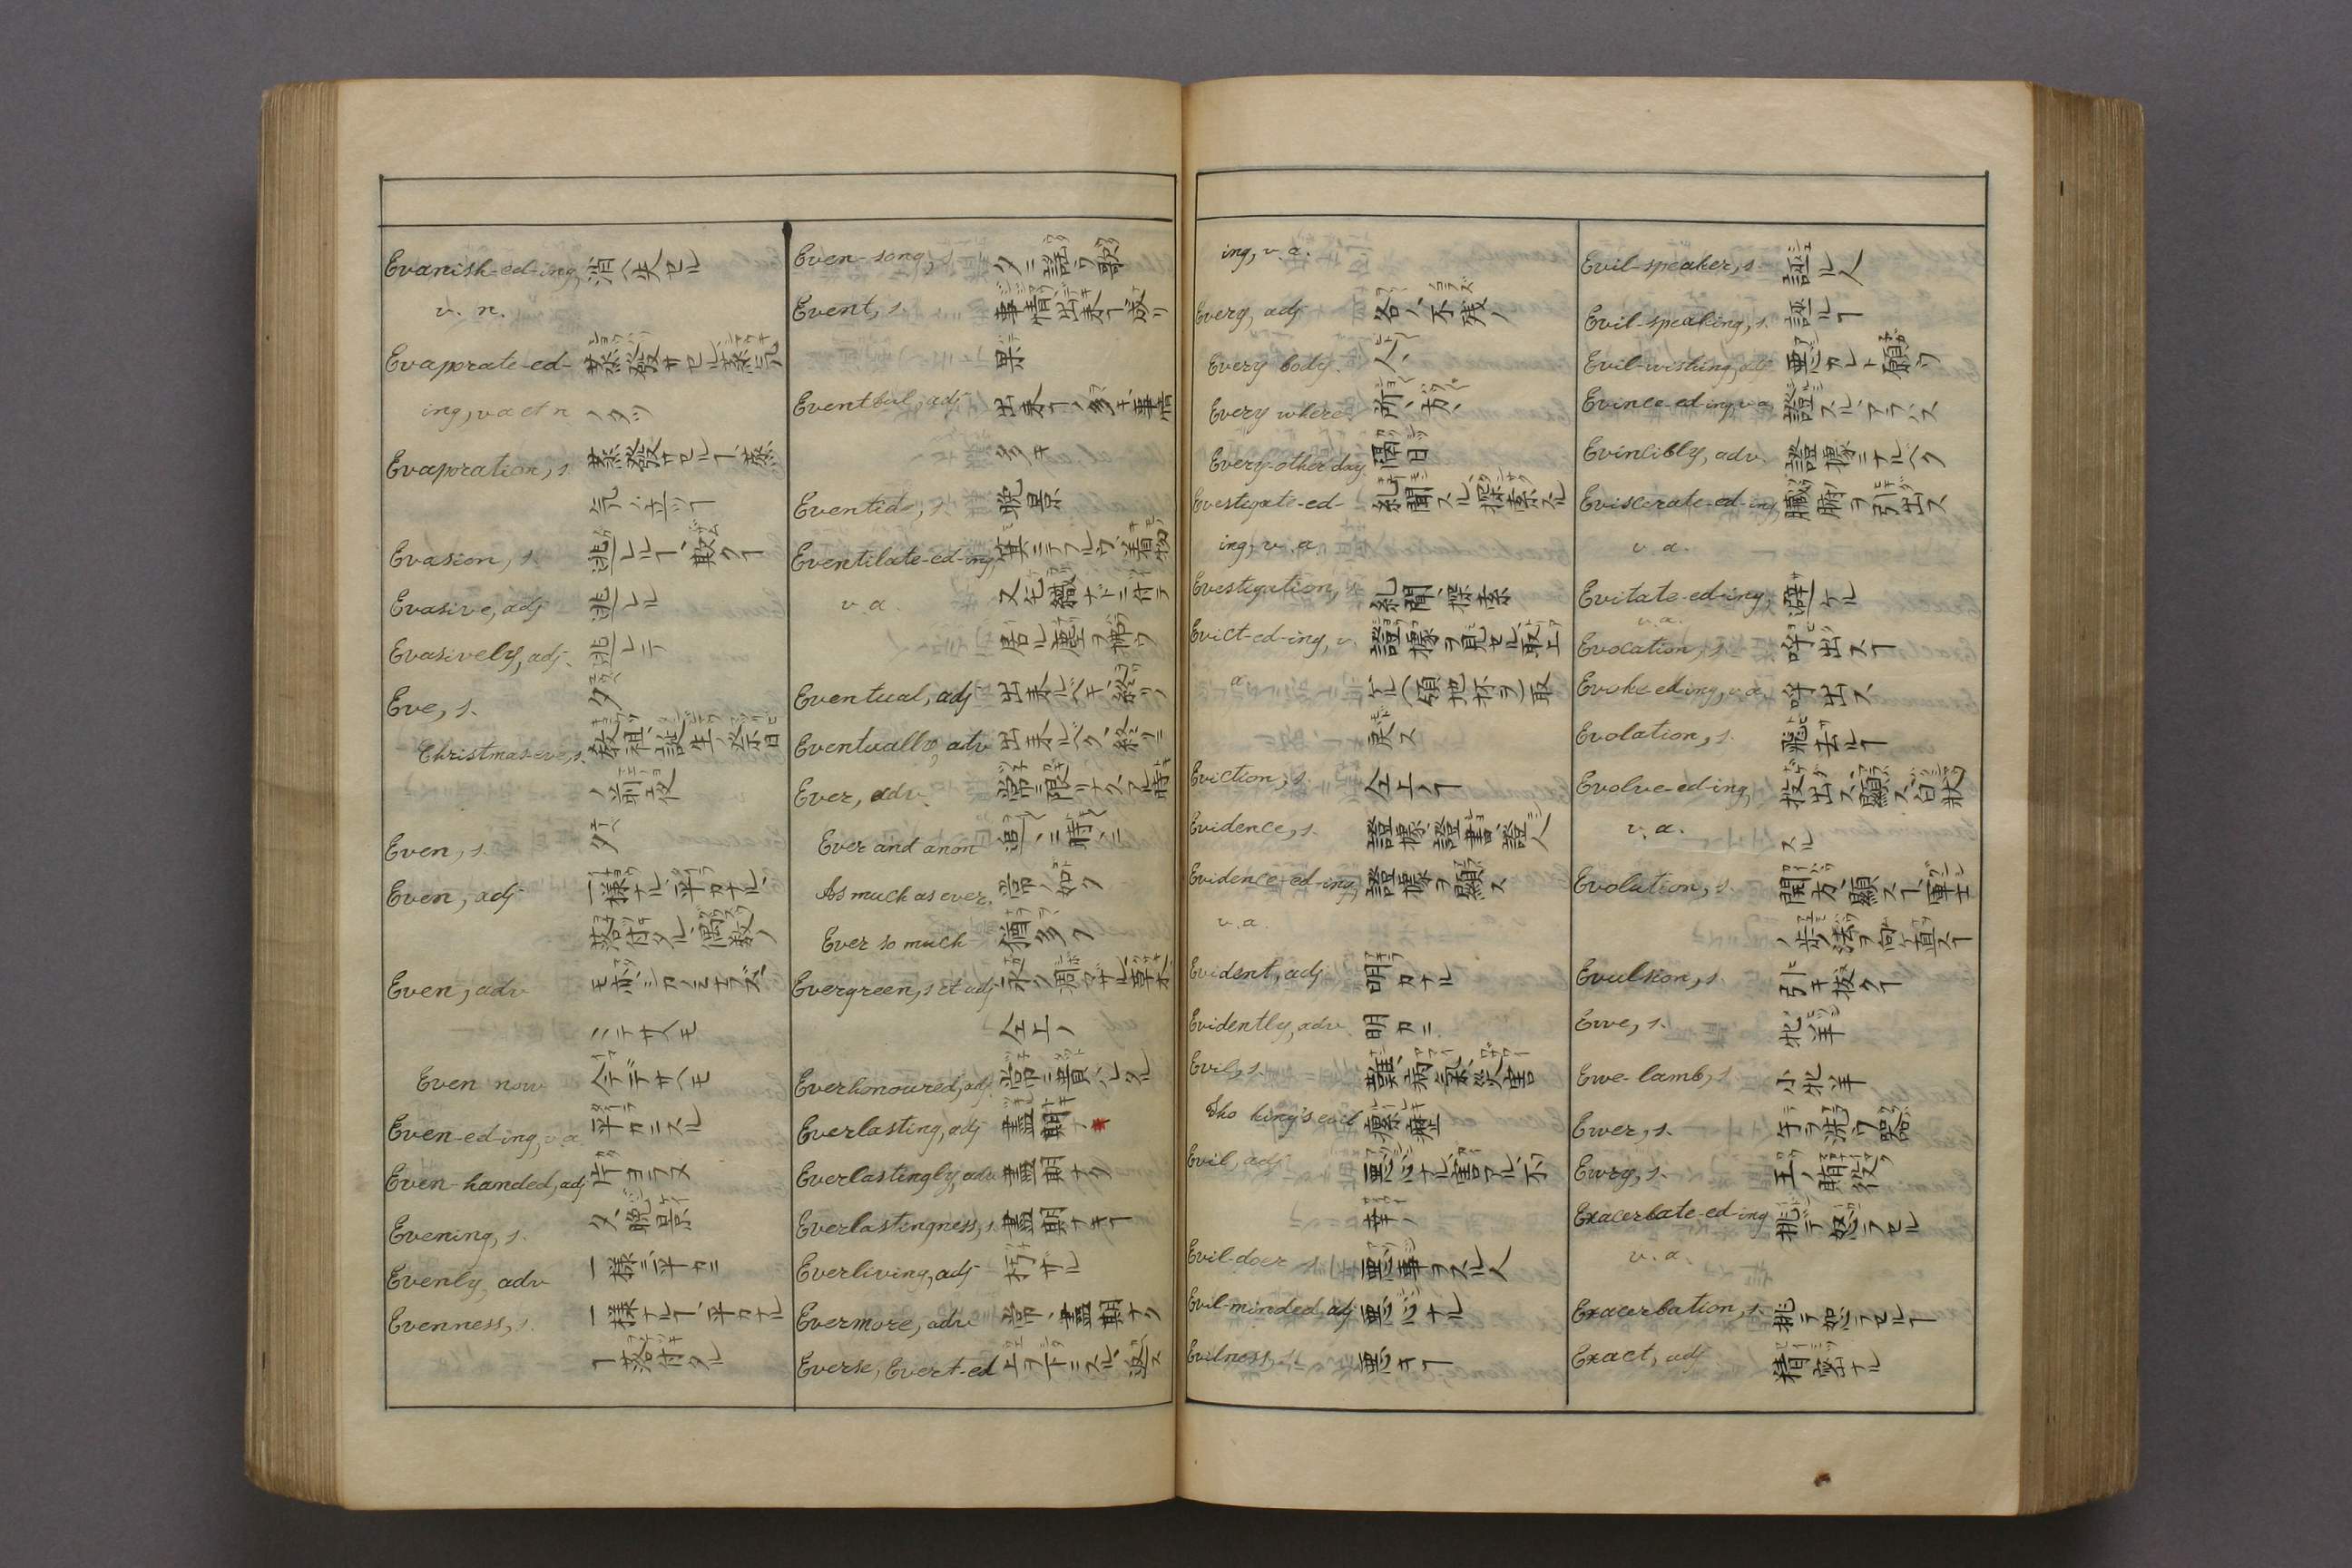 Evanish-ed-ing, 消ヘ失セル
v. n.
Evaporate-ed- 蒸發サセル、蒸気
ing, v. a et n. ノタツ
Evaporation, s. 蒸發サセルヿ、蒸
気ノ立ツヿ
Evasion, s. 逃レルヿ、欺クヿ
Evasive, adj 逃レル
Evasively, adj. 逃レテ
Eve, s. 夕
Christmas-eve, s. 教祖ノ誕生ノ祭日
ノ前夜
Even, s. 夕
Even, adj 一様ナル、平カナル、
落付タル、偶数ノ
Even, adv
ニテサヘモ
Even now 今デサヘモ
Even-ed-ing, v. a. 平カニスル
Even-handed, adj 片ヨラヌ
Evening, s. 夕、晩景
Evenly, adv 一様ニ、平カニ
Evenness, s. 一様ナルヿ、平カナル
ヿ、落付タル
Even-song, s. 夕ニ謡ウ歌
Event, s. 事情、出来ヿ、成リ
果
Eventful, adj 出来ヿノ多キ、事情
多キ
Eventide, s. 晩景
Eventilate-ed-ing, 箕ニテフルウ、着物
v. a. 又毛織ナドニ付テ
居ル塵ヲ拂ウ
Eventual, adj 出来ルベキ、終リノ
Eventually, adv 出来ルベク、終リニ
Ever, adv. 常ニ、限リナク、アル時
Ever and anon 追々ニ、時々ニ
As much as ever. 常ノ如ク
Ever so much 猶多ク
Evergreen, s et adj 永ク凋マザル草木
仝上ノ
Everhonoured, adj. 常ニ貴バレタル
Everlasting, adj 盡期ナキ
Everlastingly, adv 盡期ナク
Everlastingness, s. 盡期ナキヿ
Everliving, adj 朽ザル
Evermore, adv 常ニ、盡期ナク
Everse, Evert-ed 上ヲ下ニスル、返ス
ing, v. a.
Every, adj 各ノ、不残ノ
Every body. 人々
Every where 所々、方々
Every-other day. 隔日
Evestigate-ed- 糺問スル、探索スル
ing, v. a.
Evestigation, s. 糺問、探索
Evict-ed-ing, v. 證據ヲ見セル、取上
a. ゲル(領地杯ヲ)取
戻ス
Eviction, s. 仝上ノヿ
Evidence, s. 證據、證書、證人
Evidence-ed-ing, 證據ヲ顕ス
v. a.
Evident, adj 明カナル
Evidently, adv 明カニ
Evil, s. 難、病氣、災害
Sho king's evil 瘰癧
Evil, adj 悪心ナル、害アル、不
幸ノ
Evil-doer s. 悪事ヲスル人
Evil-minded, adj 悪心ナル
Evilness, s. 悪キヿ
Evil-speaker, s. 誣ル人
Evil-speaking, s. 誣ルヿ
Evil-wishing, adj 悪カレト願ウ
Evince-ed-ing, v. a. 證スル、アラハス
Evincibly, adv. 證據ニナルベク
Eviscerate-ed-ing, 臓腑ヲ引出ス
v. a.
Evitate-ed-ing, 避ケル
v. a.
Evocation, s. 呼出スヿ
Evoke ed ing, v. a. 呼出ス
Evolation, s. 飛去ルヿ
Evolve-ed-ing, 投出ス、顕ス、白状
v. a. スル
Evolution, s. 開方、顕スヿ、軍士
ノ歩法ヲ向ケ直スヿ
Evulsion, s. 引キ抜クヿ
Ewe, s. 牝羊
Ewe-lamb, s. 小牝羊
Ewer, s. 手ヲ洗ウ器
Ewry, s. 王ノ賄役
Exacerbate-ed-ing 挑デ怒ラセル
v. a.
Exacerbation, s. 挑デ怒ラセルヿ
Exact, adj 精密ナル